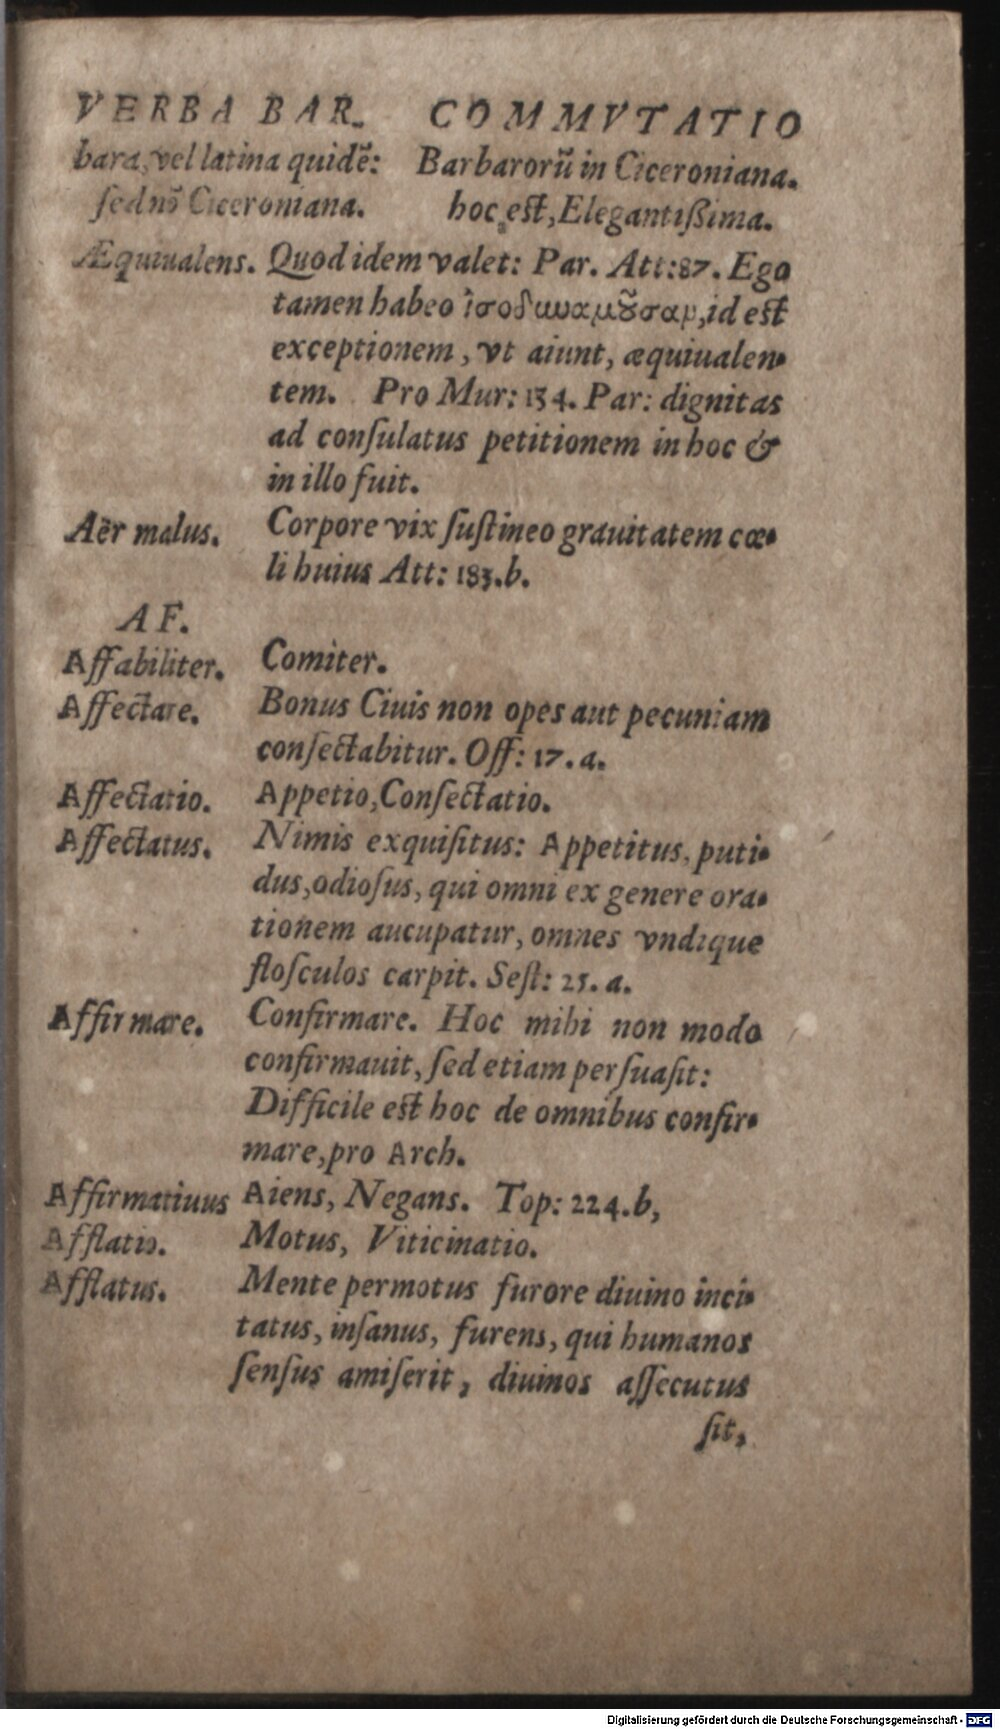 VERBA BAR. COMMVTATIO
bara, vel latina quidē: Barbarorū in Ciceroniana.
sed nō Ciceroniana. hoc est, Elegantißima.
Æquiualens. Quod idem valet: Par. Att:87. Ego
tamen habeo ἰσοδυναμοῦσαν, id est
exceptionem, vt aiunt, æquiualen-
tem. Pro Mur: 134. Par: dignitas
ad consulatus petitionem in hoc &
in illo fuit.
Aër malus. Corpore vix sustineo grauitatem cœ-
li huius Att: 183.b.
AF.
Affabiliter. Comiter.
Affectare. Bonus Ciuis non opes aut pecuniam
consectabitur. Off: 17. a.
Affectatio. Appetio, Consectatio.
Affectatus. Nimis exquisitus: Appetitus, puti-
dus, odiosus, qui omni ex genere ora-
tionem aucupatur, omnes vndique
flosculos carpit. Sest: 25. a.
Affirmare. Confirmare. Hoc mihi non modo
confirmauit, sed etiam persuasit:
Difficile est hoc de omnibus confir-
mare, pro Arch.
Affirmatiuus Aiens, Negans. Top: 224.b,
Afflatio. Motus, Viticinatio.
Afflatus. Mente permotus furore diuino inci-
tatus, insanus, furens, qui humanos
sensus amiserit, diuinos assecutus
sit,
Digitalisierung gefördert durch die Deutsche Forschungsgemeinschaft - DFG